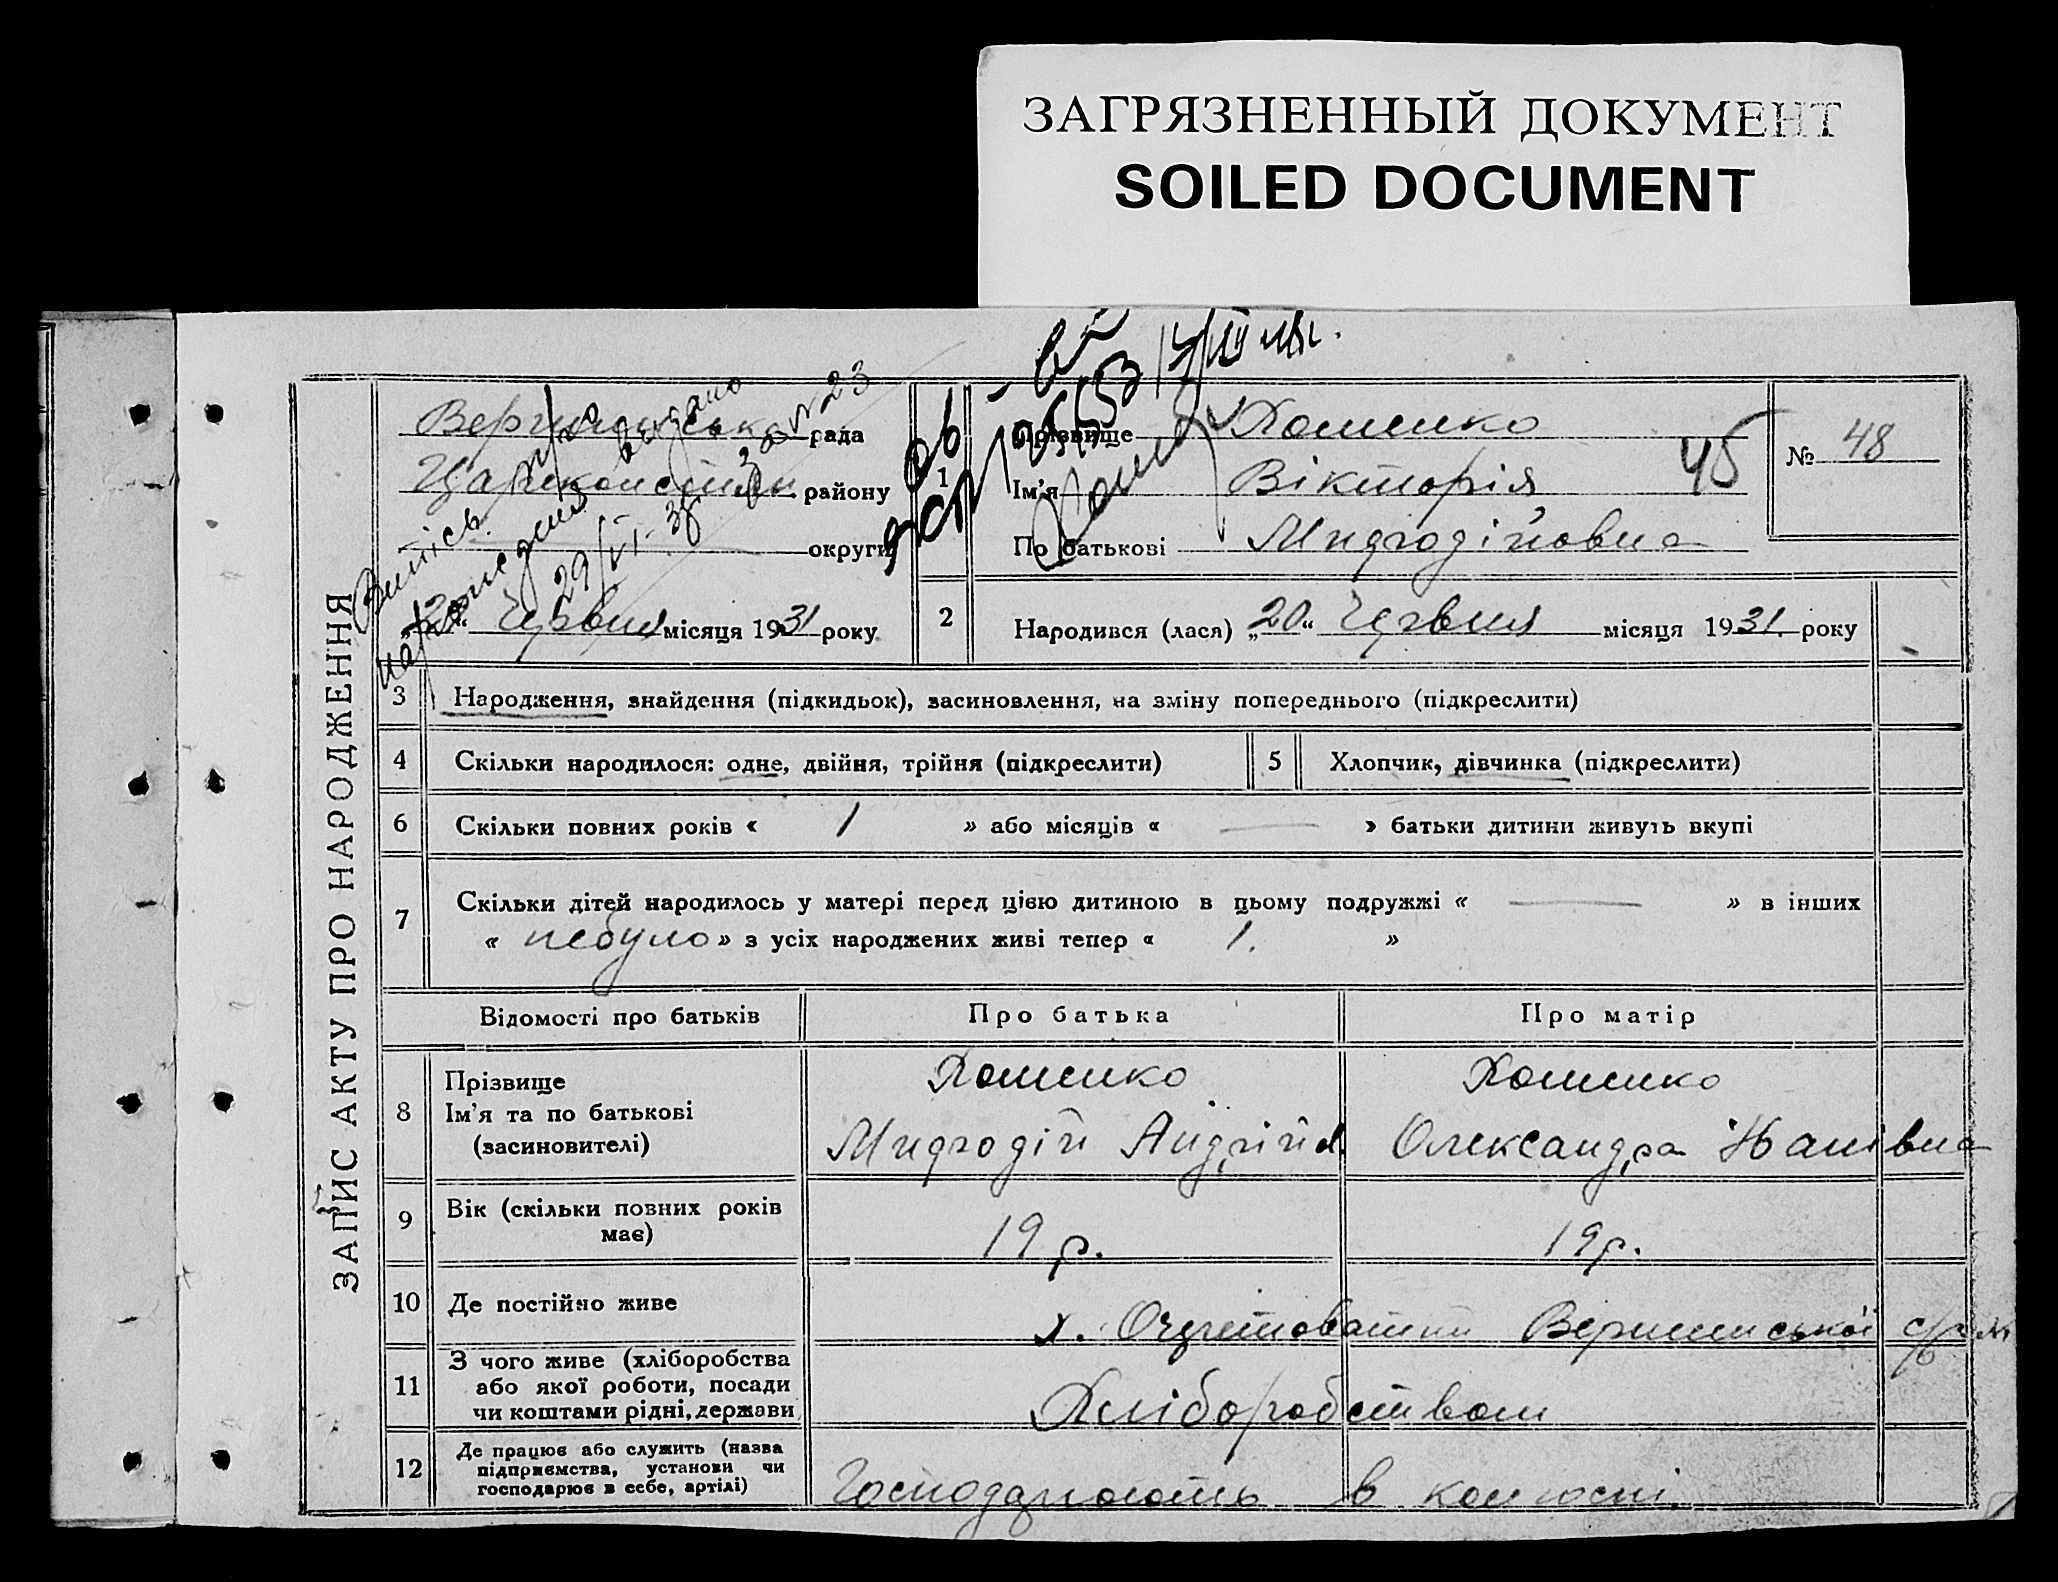 ЗАГРЯЗНЕННЫЙ ДОКУМЕНТ
SOILED DOCUMENT
ЗАПИС АКТУ ПРО НАРОДЖЕННЯ
рада
району
округи
Витпісь про
народження видано
29/VI-38р за № 23
„20“ Червня місяця 1931 року
1 Прізвище Хоменко
Ім’я Вікторія
По батькові
45
№ 48
2 Народився (лася) „20“ Червня місяця 1931 року
3 Народження, знайдення (підкидьок), засиновлення, на зміну попереднього (підкреслити)
4 Скільки народилося: одне, двійня, трійня (підкреслити) 5 Хлопчик, дівчинка (підкреслити)
6 Скільки повних років « 1 » або місяців « — » батьки дитини живуть вкупі
7 Скільки дітей народилось у матері перед цією дитиною в цьому подружжі « — » в інших
« небуло » з усіх народжених живі тепер « 1. »
Відомості про батьків Про батька Про матір
8 Прізвище Хоменко Хоменко
Ім’я та по батькові
(засиновителі) Андрійов. Олександра Іванівна
9 Вік (скільки повних років
має) 19 р. 19 р.
10 Де постійно живе х. Очеретоватий
11 З чого живе (хліборобства
або якої роботи, посади
чи коштами рідні, держави Хліборобством
12 Де працює або служить (назва
підприємства, установи чи
господарює в себе, артілі) Господарюють в